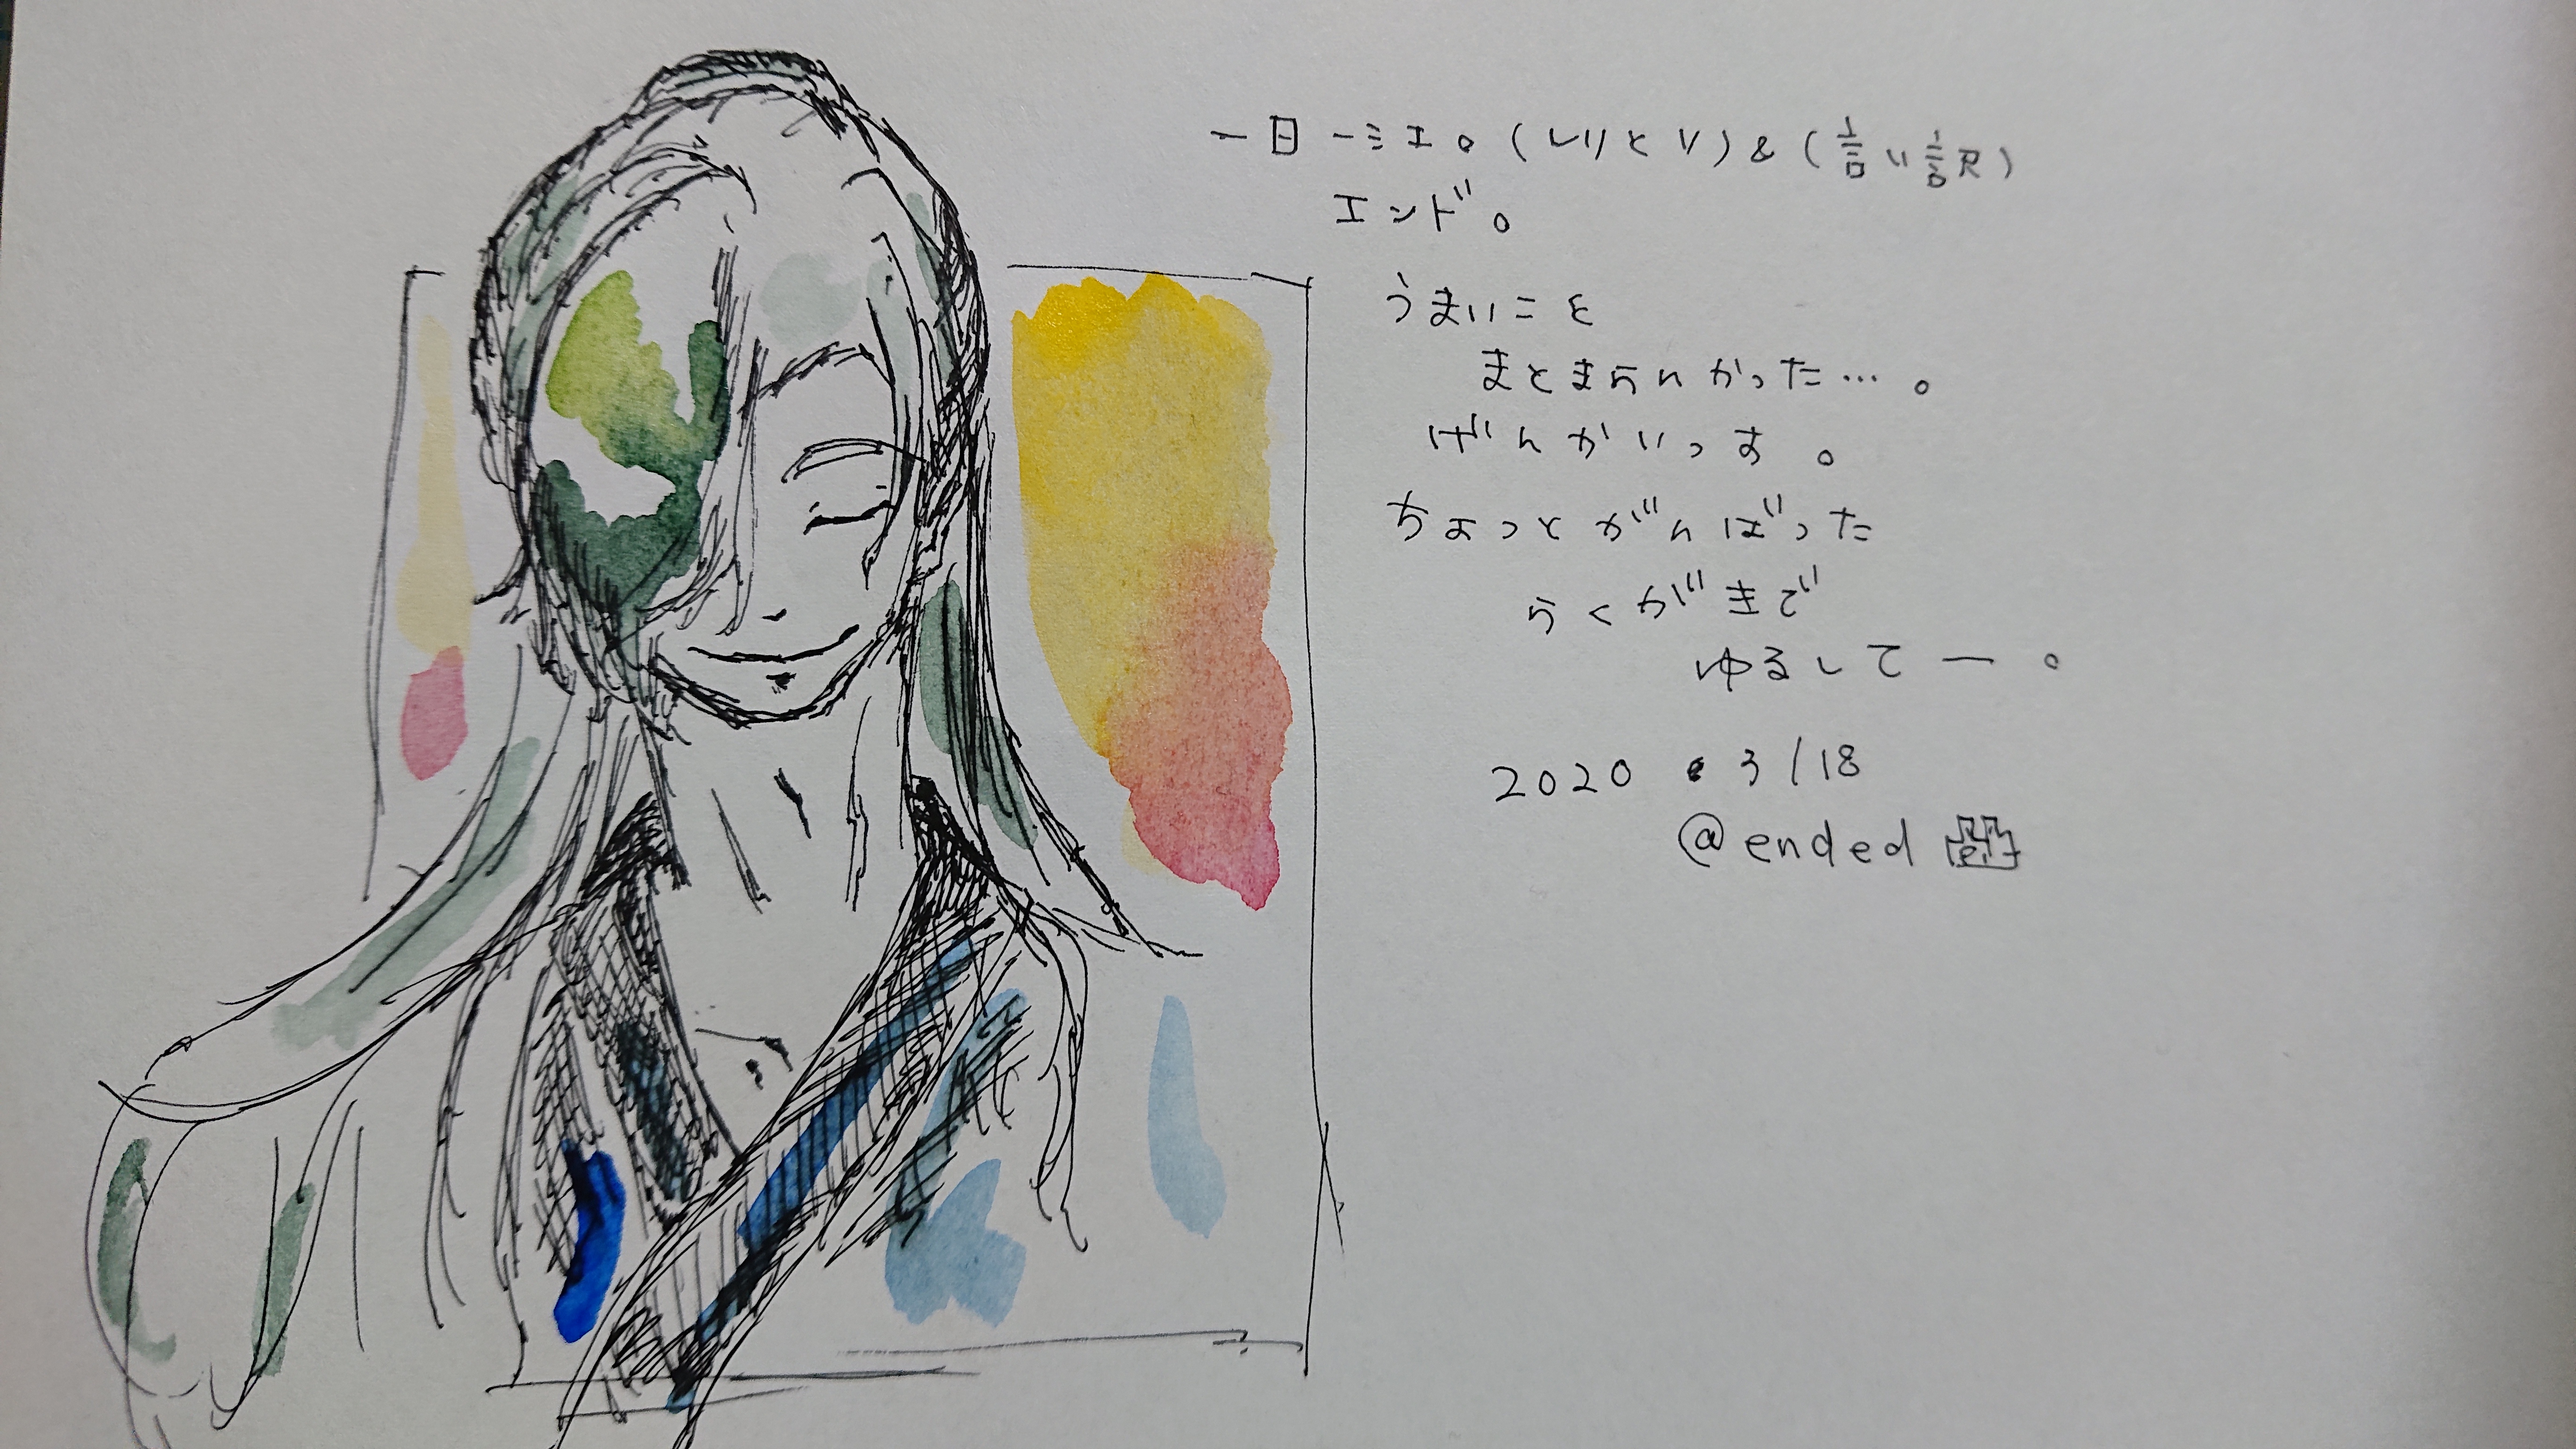 一日一ミエ。(しりとり)&(言い訳)
エンド。
うまいこと
まとまらんかった…。
げんかいっす。
ちょっとがんばった
らくがきで
ゆるしてー。
2020・3/18
@ended